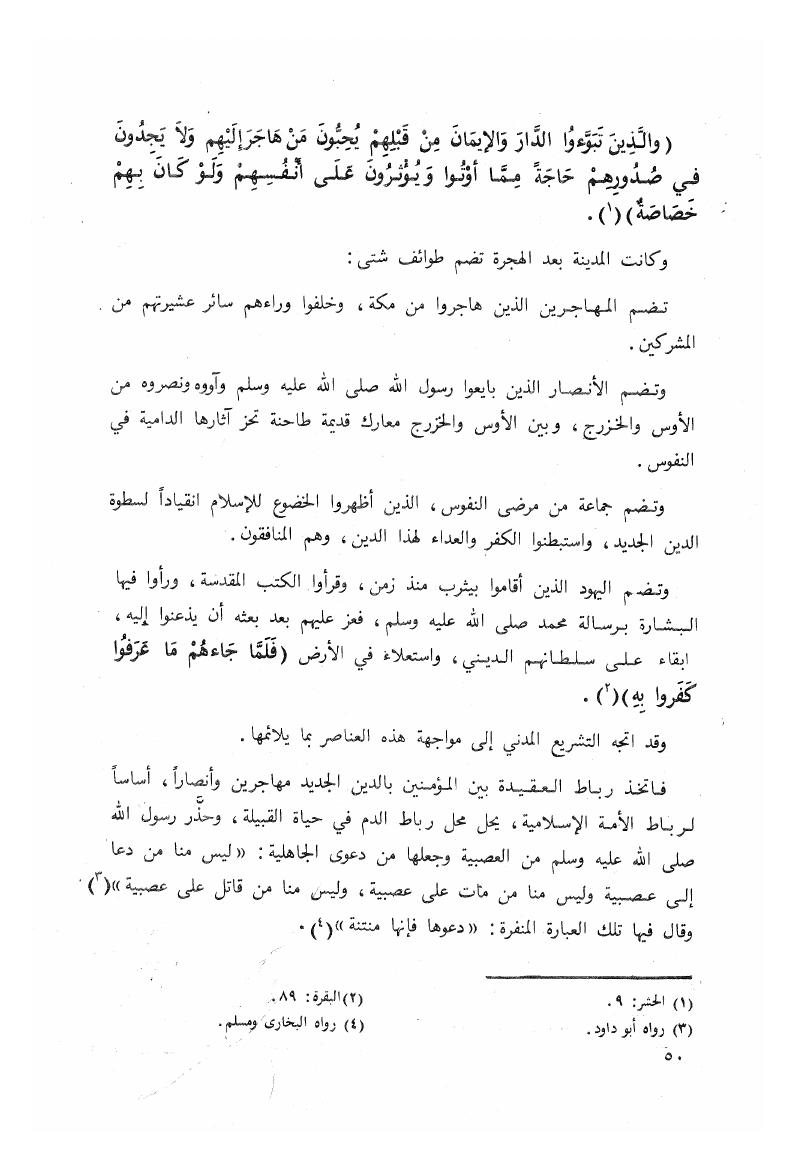 (والَّذِينَ تَبَوَّءوُا الدَّارَ وَالإيمَانَ مِنْ قَبْلِهِمْ يُحِبُّونَ مَنْ هَاجَرَ إلَيْهِم وَلَا يَجِدُونَ
في صُدُورِهِمْ حَاجَةً مِمَّا أوتُوا وَيُؤْثِرُونَ عَلَى أنْفُسِهِمْ وَلَوْ كَانَ بِهِمْ
خَصَاصَةٌ)(١).
وكانت المدينة بعد الهجرة تضم طوائف شتى:
تضم المهاجرين الذين هاجروا من مكة، وخلفوا وراءهم سائر عشيرتهم من
المشركين.
وتضم الأنصار الذين بايعوا رسول الله صلى الله عليه وسلم وآووه ونصروه من
الأوس والخزرج، وبين الأوس والخزرج معارك قديمة طاحنة تحز آثارها الدامية في
النفوس.
وتضم جماعة من مرضى النفوس، الذين أظهروا الخضوع للإسلام انقياداً لسطوة
الدين الجديد، واستبطنوا الكفر والعداء لهذا الدين، وهم المنافقون.
وتضم اليهود الذين أقاموا بيثرب منذ زمن، وقرأوا الكتب المقدسة، ورأوا فيها
البشارة برسالة محمد صلى الله عليه وسلم، فعز عليهم بعد بعثه أن يذعنوا إليه،
ابقاء على سلطانهم الديني، واستعلاءً في الأرض (فَلَمَّا جَاءهُمْ مَا عَرَفُوا
كَفَروا بِهِ)(٢).
وقد اتجه التشريع المدني إلى مواجهة هذه العناصر بما يلائمها.
فاتخذ رباط العقيدة بين المؤمنين بالدين الجديد مهاجرين وأنصاراً، أساساً
لرباط الأمة الإسلامية، يحل محل رباط الدم في حياة القبيلة، وحذَّر رسول الله
صلى الله عليه وسلم من العصبية وجعلها من دعوى الجاهلية: «ليس منا من دعا
إلى عصبية وليس منا من مات على عصبية، وليس منا من قاتل على عصبية»(٣)
وقال فيها تلك العبارة المنفرة: «دعوها فإنها منتنة»(٤).
(١) الحشر: ٩. (٢) البقرة: ٨٩.
(٣) رواه أبو داود. (٤) رواه البخارى ومسلم.
٥٠